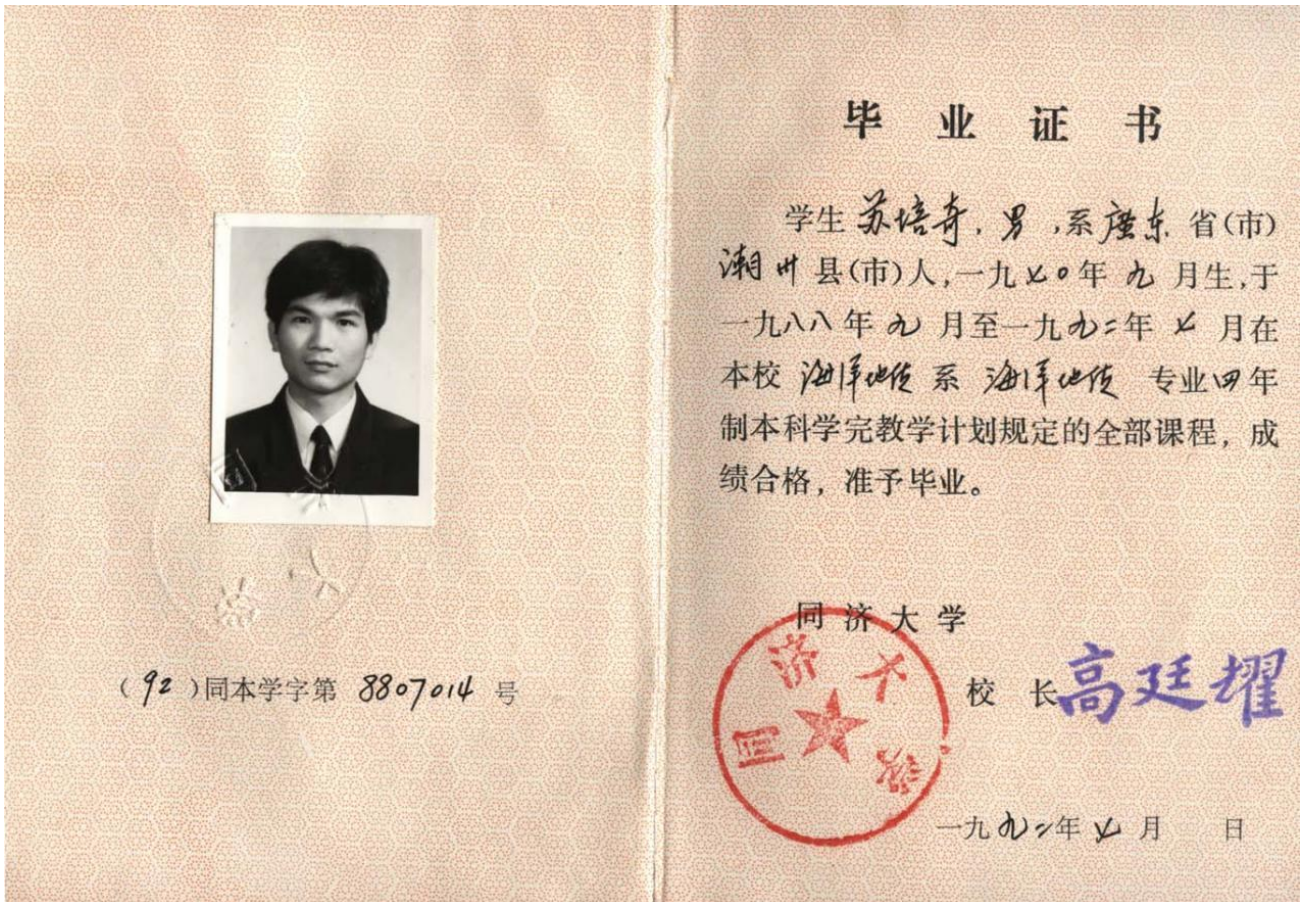 （92）同本学字第 8807014 号
毕业证书
学生 苏培奇，男，系廣东 省(市)
潮州 县(市)人，一九七〇年 九 月生，于
一九八八年 九 月至一九九二年 七 月在
本校 海洋地质 系 海洋地质 专业四年
制本科学完教学计划规定的全部课程，成
绩合格，准予毕业。
同济大学
同济大学
校 长 高廷耀
一九九二年 七 月 日